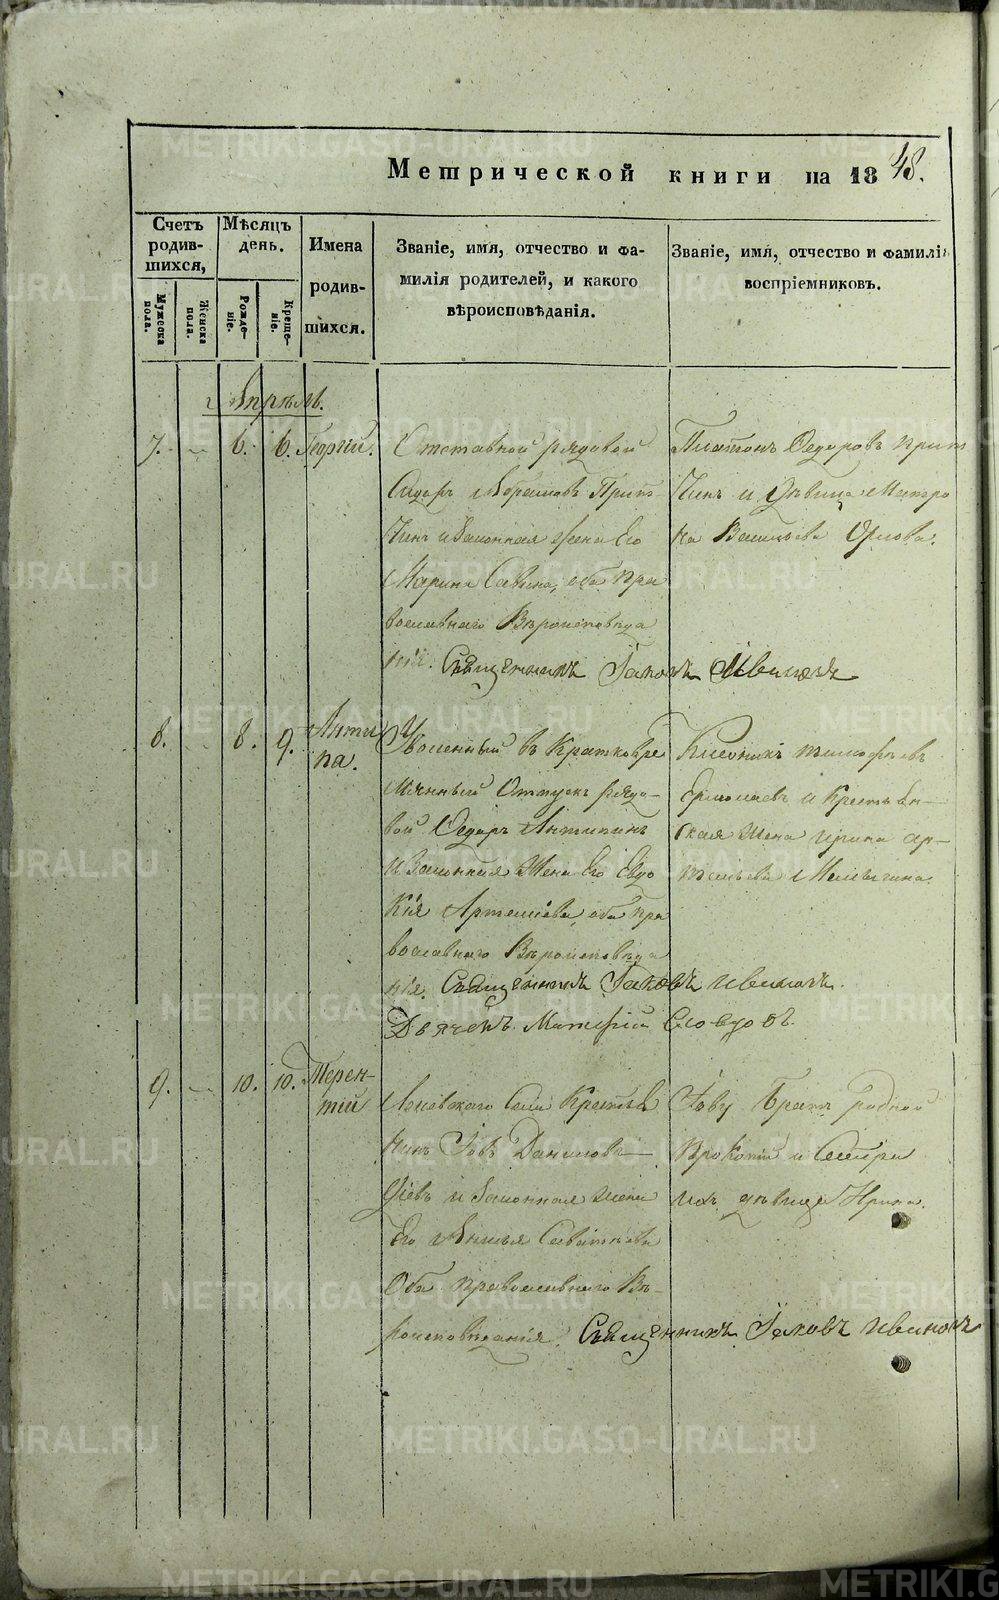 Метрической книги на 1848.
Счетъ родив-шихся,
Мужеска пола.
Женска пола.
Мѣсяцъ день.
Рожде-ніе.
Креще-ніе.
Имена родив-шихся.
Званіе, имя, отчество и фа-
милія родителей, и какого
вѣроисповѣданія.
Званіе, имя, отчество и фамилія
воспріемниковъ.
Апрѣль.
7. 6. 6. Георгій.
Отставной рядовой
Сидоръ Абрамовъ
и законная жена Его
Марина Савина, оба пра
вославнаго Вѣроисповѣда
нія. Священникъ Іаковъ Ивановъ
Платонъ Федоровъ
и дѣвица Матро
на Васильева Орлова.
8. 8. 9. Анти
па.
Уволенный въ Кратковре
менный Отпускъ рядо-
вой Федоръ Антипинъ
и Законная Жена Его Евдо
кія Артемьева, оба пра
вославнаго Вѣроисповѣда
нія. Священникъ Іаковъ Ивановъ.
Дьячекъ Матфій Словцовъ.
Тимофѣевъ
Ермолаевъ и Крестьян-
ская Жена Ирина Ар-
темьева Малыгина.
9. 10. 10. Терен-
тій
Села Крестья
нинъ Іовъ Даниловъ
и Законная жена
Его
Оба православнаго Вѣ-
роисповѣданія. Священникъ Іаковъ Ивановъ
Іову Братъ родной
Прокопій и Сестра
ихъ дѣвица Ирина.
METRIKI.GASO-URAL.RU